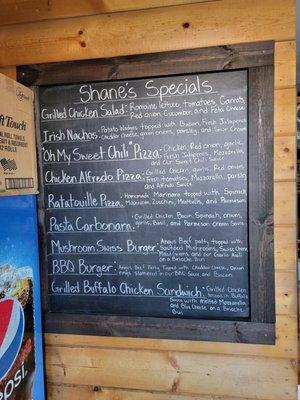 Shane's Specials
Grilled Chicken Salad: Romaine lettuce, tomatoes, Carrots,
Red onion, Cucumber and Feta Cheese
Irish Nachos: Potato Wedges topped with Bacon, Fresh Jalapenos
Cheddar cheese, green onions, parsley, and Sour Cream
"Oh My Sweet Chili" Pizza: Grilled Chicken, garlic, Red onion,
Fresh Jalapenos, Mozzarella,
and Our Sweet Chili Sauce
Chicken Alfredo Pizza: Grilled Chicken, garlic, Red onion,
Fresh tomatoes, Mozzarella, Parsley,
and Alfredo Sauce
Ratatouille Pizza: Homemade Marinara topped with Spinach,
Mushroom, Zucchini, Mozzarella, and Parmesan
Pasta Carbonara: Grilled Chicken, Bacon, Spinach, onions,
garlic, Basil, and Parmesan Cream Sauce
Mushroom Swiss Burger: Angus Beef patty, topped with
Sauteed Mushrooms, Swiss Cheese,
and our Garlic Aioli
on a Brioche Bun
BBQ Burger: Angus Beef Patty, Topped with Cheddar Cheese,
onion rings Slathered in our BBQ Sauce, and Bacon
Grilled Buffalo Chicken Sandwich: Grilled Chicken
tossed in Buffalo
Sauce with Melted Mozzarella
and Blue Cheese on a Brioche
Bun
Soft Touch
pepsi